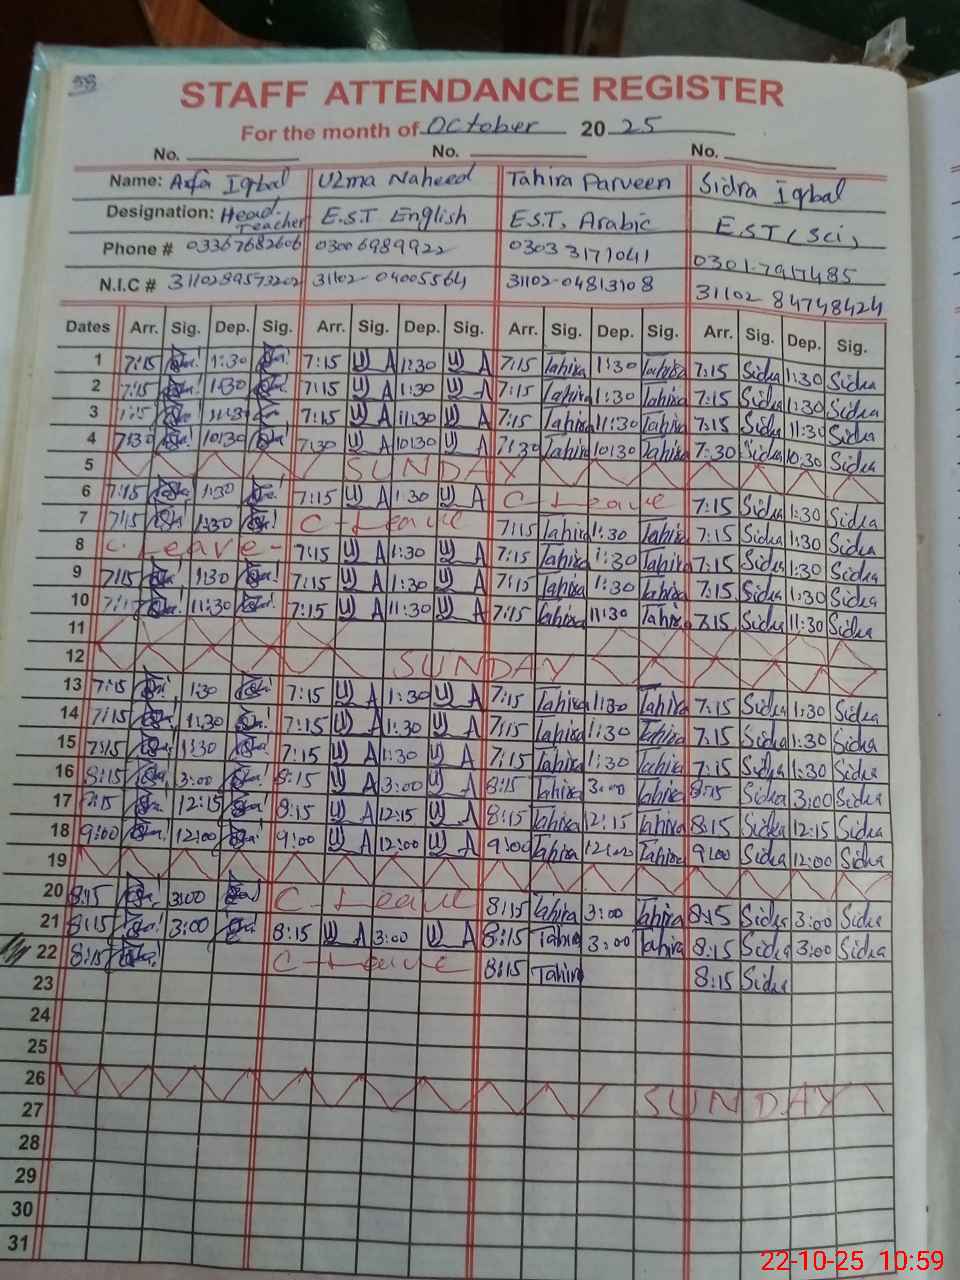 58
STAFF ATTENDANCE REGISTER
For the month of October 2025
No. No. No.
Name: Arfa Iqbal Uzma Naheed Tahira Parveen Sidra Iqbal
Designation: Head Teacher E.S.T English E.S.T, Arabic E.S.T (Sci)
Phone # 03367682606 03006989922 0303 3171041 0301-7917485
N.I.C # 3110289573202 31102-04005564 31102-04813108 31102 84748424
Dates Arr. Sig. Dep. Sig. Arr. Sig. Dep. Sig. Arr. Sig. Dep. Sig. Arr. Sig. Dep. Sig.
1 7:15 1:30 7:15 U A 1:30 U A 7:15 Tahira 1:30 Tahira 7:15 Sidra 1:30 Sidra
2 7:15 1:30 7:15 U A 1:30 U A 7:15 Tahira 1:30 Tahira 7:15 Sidra 1:30 Sidra
3 7:15 11:30 7:15 U A 11:30 U A 7:15 Tahira 11:30 Tahira 7:15 Sidra 11:30 Sidra
4 7:30 10:30 7:30 U A 10:30 U A 7:30 Tahira 10:30 Tahira 7:30 Sidra 10:30 Sidra
5 SUNDAY
6 7:15 1:30 7:15 U A 1:30 U A C-Leave 7:15 Sidra 1:30 Sidra
7 7:15 1:30 C-Leave 7:15 Tahira 1:30 Tahira 7:15 Sidra 1:30 Sidra
8 C-Leave- 7:15 U A 1:30 U A 7:15 Tahira 1:30 Tahira 7:15 Sidra 1:30 Sidra
9 7:15 1:30 7:15 U A 1:30 U A 7:15 Tahira 1:30 Tahira 7:15 Sidra 1:30 Sidra
10 7:15 11:30 7:15 U A 11:30 U A 7:15 Tahira 11:30 Tahira 7:15 Sidra 11:30 Sidra
11
12 SUNDAY
13 7:15 1:30 7:15 U A 1:30 U A 7:15 Tahira 1:30 Tahira 7:15 Sidra 1:30 Sidra
14 7:15 1:30 7:15 U A 1:30 U A 7:15 Tahira 1:30 Tahira 7:15 Sidra 1:30 Sidra
15 7:15 1:30 7:15 U A 1:30 U A 7:15 Tahira 1:30 Tahira 7:15 Sidra 1:30 Sidra
16 8:15 3:00 8:15 U A 3:00 U A 8:15 Tahira 3:00 Tahira 8:15 Sidra 3:00 Sidra
17 8:15 12:15 8:15 U A 12:15 U A 8:15 Tahira 12:15 Tahira 8:15 Sidra 12:15 Sidra
18 9:00 12:00 9:00 U A 12:00 U A 9:00 Tahira 12:00 Tahira 9:00 Sidra 12:00 Sidra
19
20 8:15 3:00 C-Leave 8:15 Tahira 3:00 Tahira 8:15 Sidra 3:00 Sidra
21 8:15 3:00 8:15 U A 3:00 U A 8:15 Tahira 3:00 Tahira 8:15 Sidra 3:00 Sidra
22 8:15 C-Leave 8:15 Tahira 8:15 Sidra
23
24
25
26 SUNDAY
27
28
29
30
31
22-10-25 10:59